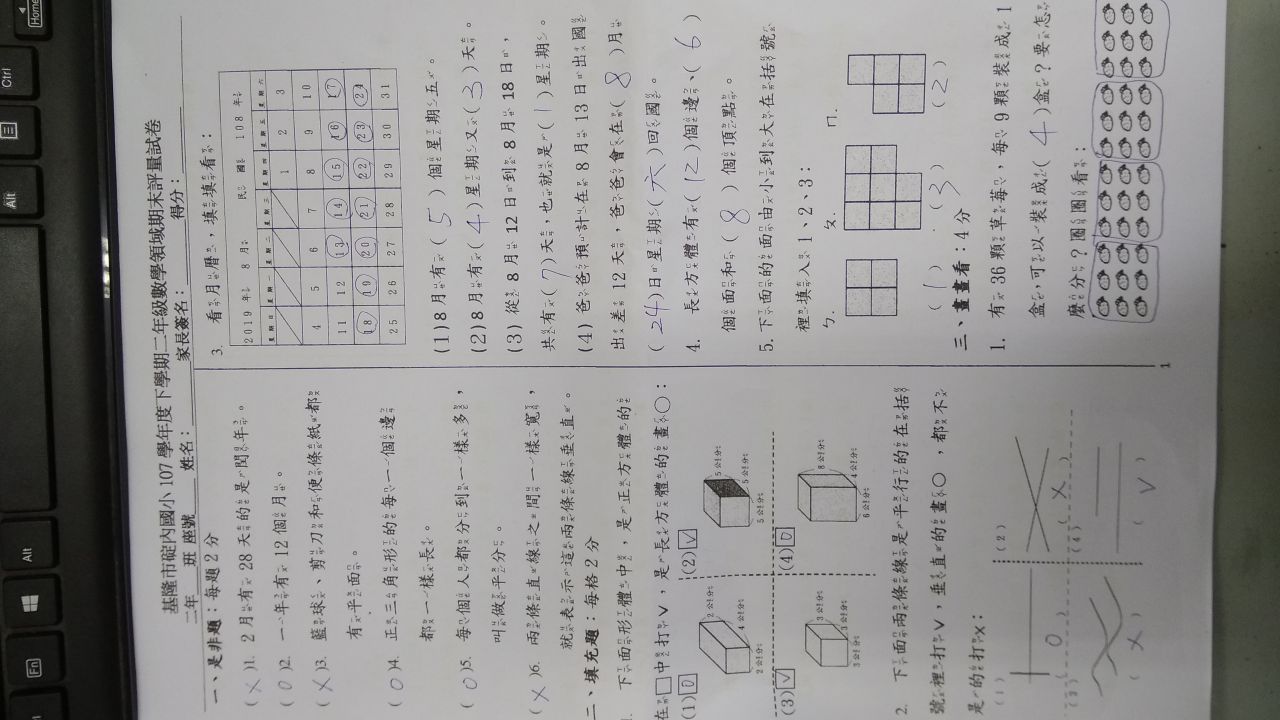 基隆市碇內國小107學年度下學期二年級數學領域期末評量試卷
二年 班 座號 姓名： 家長簽名： 得分：
一、是非題：每題2分
(X)1. 2月有28天的是閏年。
(O)2. 一年有12個月。
(X)3. 籃球、剪刀和便條紙都
有平面。
(O)4. 正三角形的每一個邊
都一樣長。
(O)5. 每個人都分到一樣多，
叫做平分。
(X)6. 兩條直線之間一樣寬，
就表示這兩條線垂直。
二、填充題：每格2分
1. 下面形體中，是正方體的
在□中打V，是長方體的畫○：
(1) O 2公分 4公分 2公分
(2) V 5公分 5公分 5公分
(3) V 3公分 3公分 3公分
(4) O 8公分 4公分 6公分
2. 下面兩條線是平行的在括
號裡打V，垂直的畫○，都不
是的打X：
(1) (O)
(2) (X)
(3) (X)
(4) (V)
3. 看月曆，填填看：
2019年 8月 民國 108年
星期日 星期一 星期二 星期三 星期四 星期五 星期六
1 2 3
4 5 6 7 8 9 10
11 12 13 14 15 16 17
18 19 20 21 22 23 24
25 26 27 28 29 30 31
(1) 8月有( 5 )個星期五。
(2) 8月有(4)星期又(3)天。
(3) 從8月12日到8月18日，
共有(7)天，也就是(1)星期。
(4) 爸爸預計在8月13日出國
出差12天，爸爸會在( 8 )月
(24)日星期(六)回國。
4. 長方體有(12)個邊、(6)
個面和( 8 )個頂點。
5. 下面的面由小到大在括號
裡填入1、2、3：
ㄅ. ㄆ. ㄇ.
(1) (3) (2)
三、畫畫看：4分
1. 有36顆草莓，每9顆裝成1
盒，可以裝成(4)盒？要怎
麼分？圈圈看：
1
Home
Ctrl
Alt
Alt
Fn